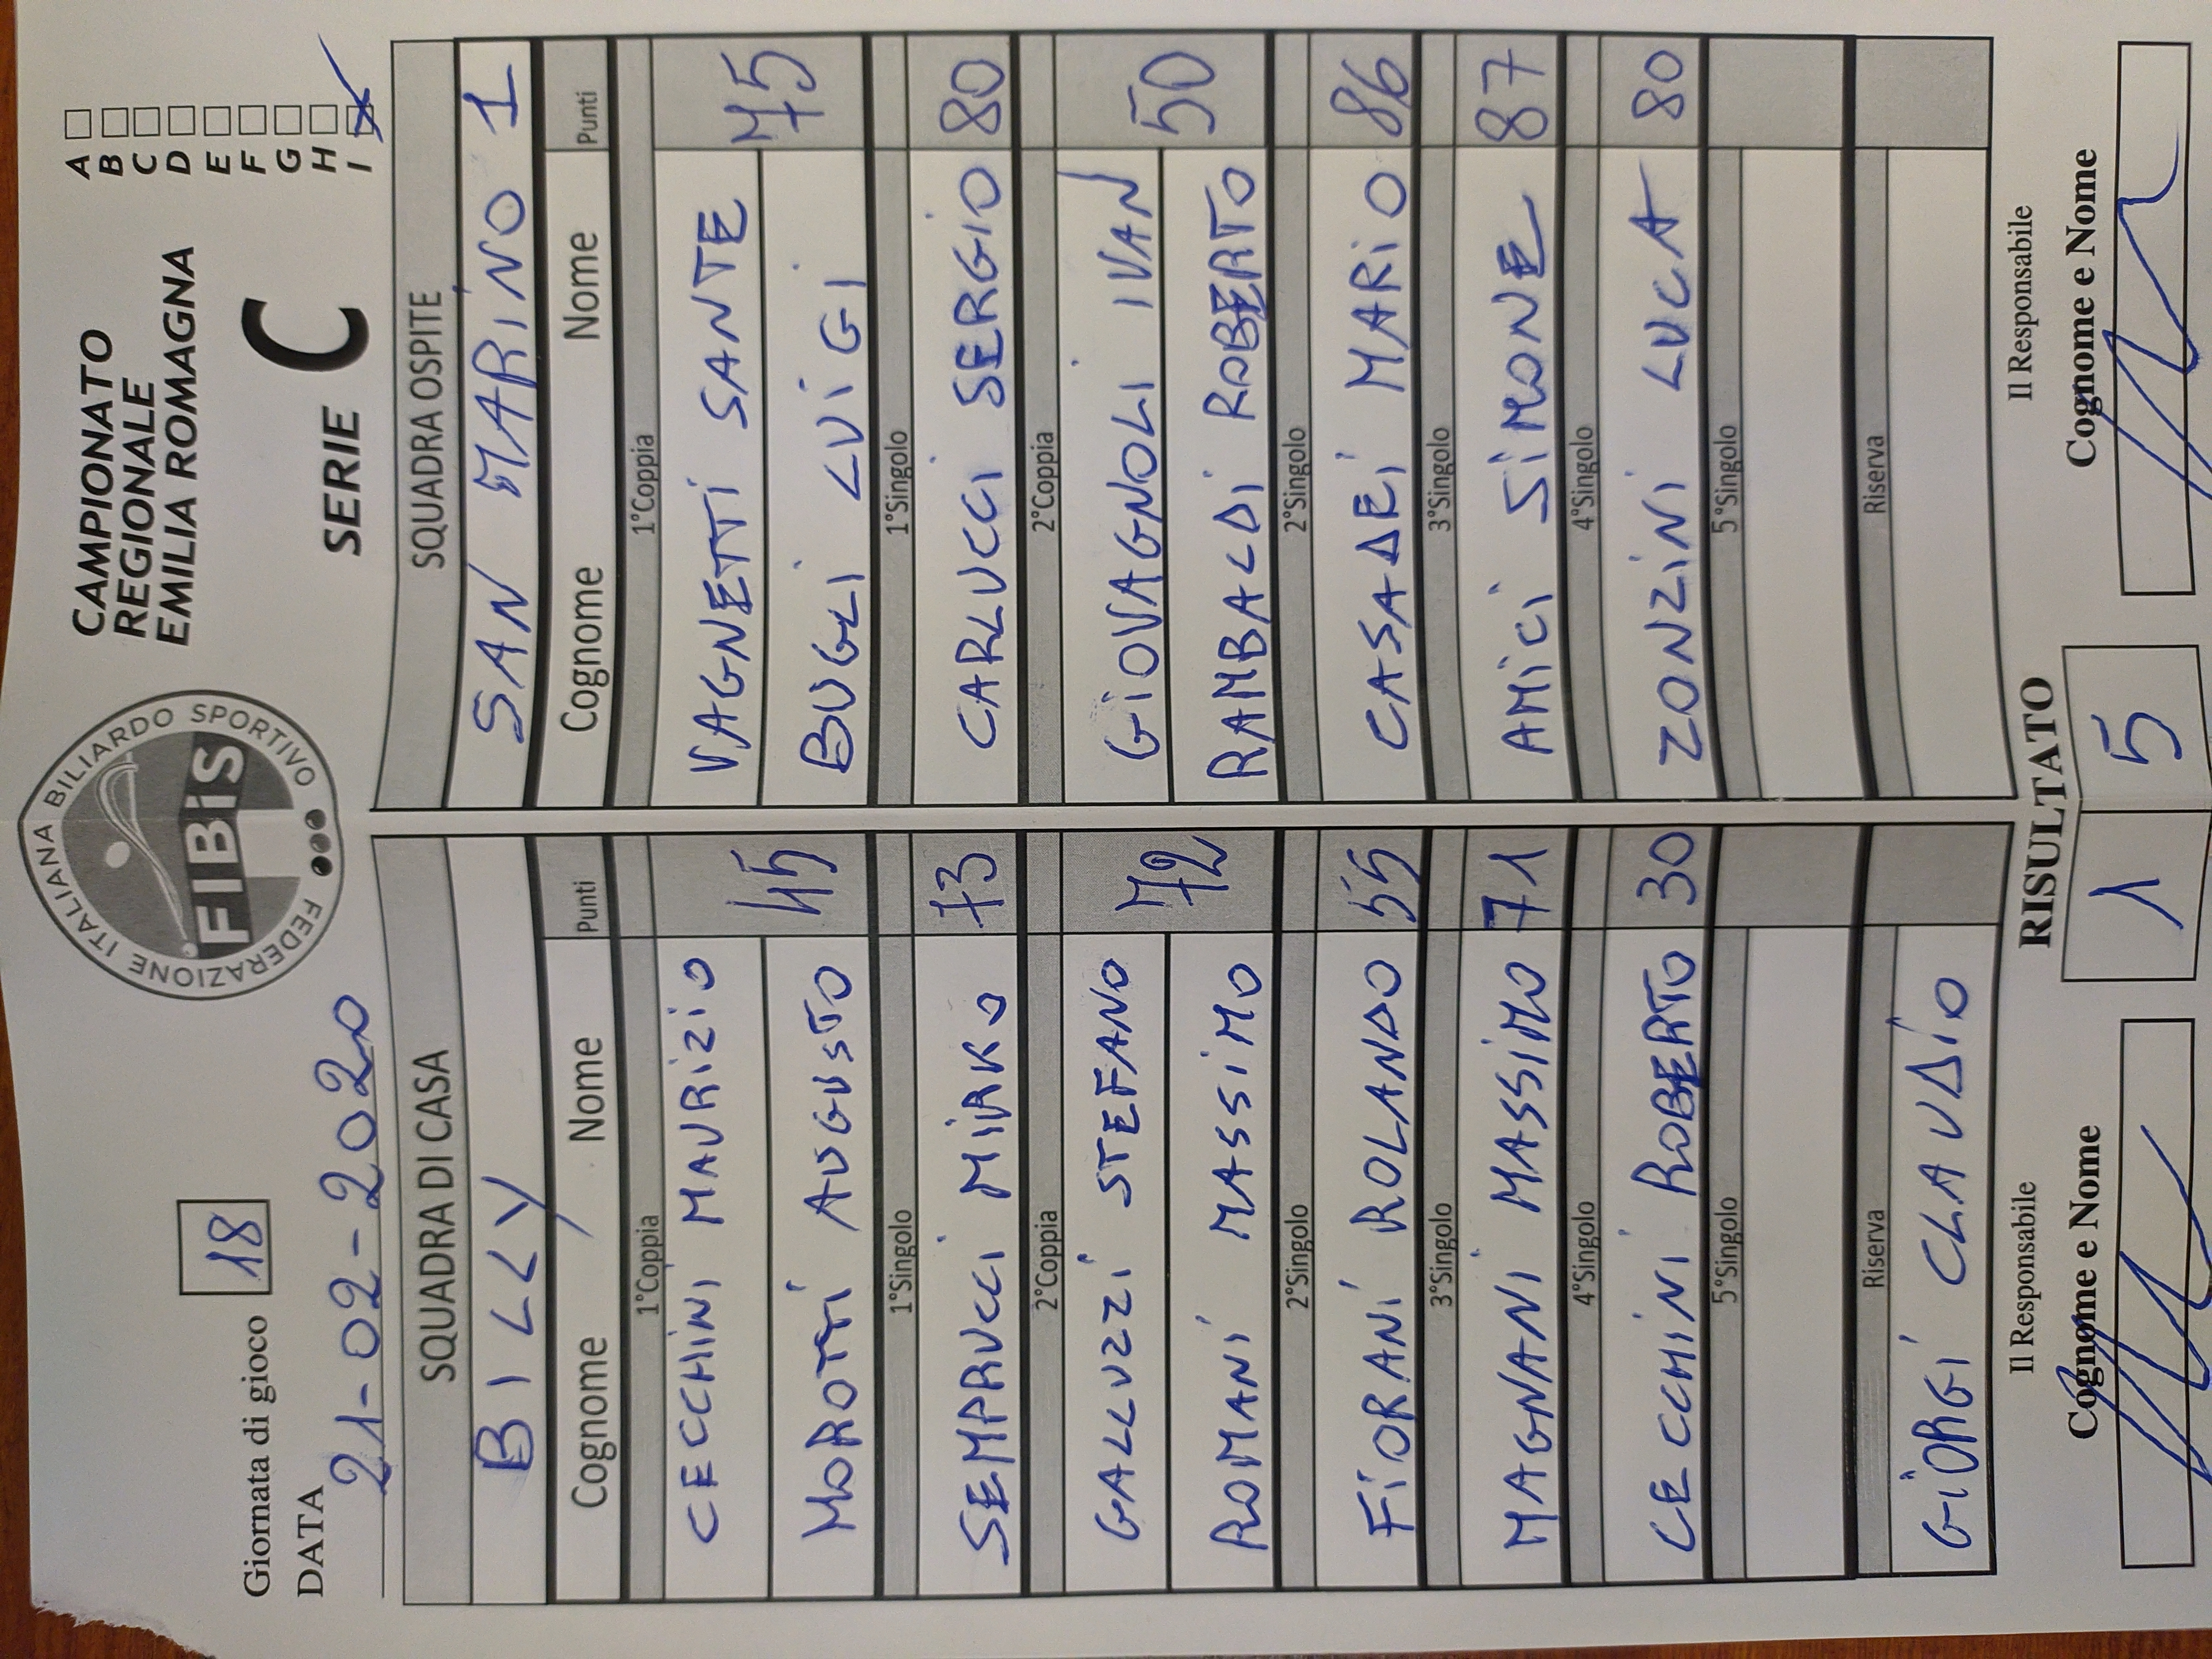 FEDERAZIONE ITALIANA BILIARDO SPORTIVO
FIBiS
CAMPIONATO
REGIONALE
EMILIA ROMAGNA
SERIE C
A
B
C
D
E
F
G
H
I
Giornata di gioco 18
DATA 21-02-2020
SQUADRA DI CASA
BILLY
Cognome Nome Punti
1°Coppia
CECCHINI MAURIZIO
MOROTTI AUGUSTO
45
1°Singolo
SEMPRUCCI MIRKO 73
2°Coppia
GALLUZZI STEFANO
ROMANI MASSIMO
72
2°Singolo
FIORANI ROLANDO 55
3°Singolo
MAGNANI MASSIMO 71
4°Singolo
CECCHINI ROBERTO 30
5°Singolo
Riserva
GIORGI CLAUDIO
Il Responsabile
Cognome e Nome
SQUADRA OSPITE
SAN MARINO 1
Cognome Nome Punti
1°Coppia
VAGNETTI SANTE
BUGLI LUIGI
75
1°Singolo
CARLUCCI SERGIO 80
2°Coppia
GIOVAGNOLI IVAN
RAMBALDI ROBERTO
50
2°Singolo
CASADEI MARIO 86
3°Singolo
AMICI SIMONE 87
4°Singolo
ZONZINI LUCA 80
5°Singolo
Riserva
Il Responsabile
Cognome e Nome
RISULTATO
1 5